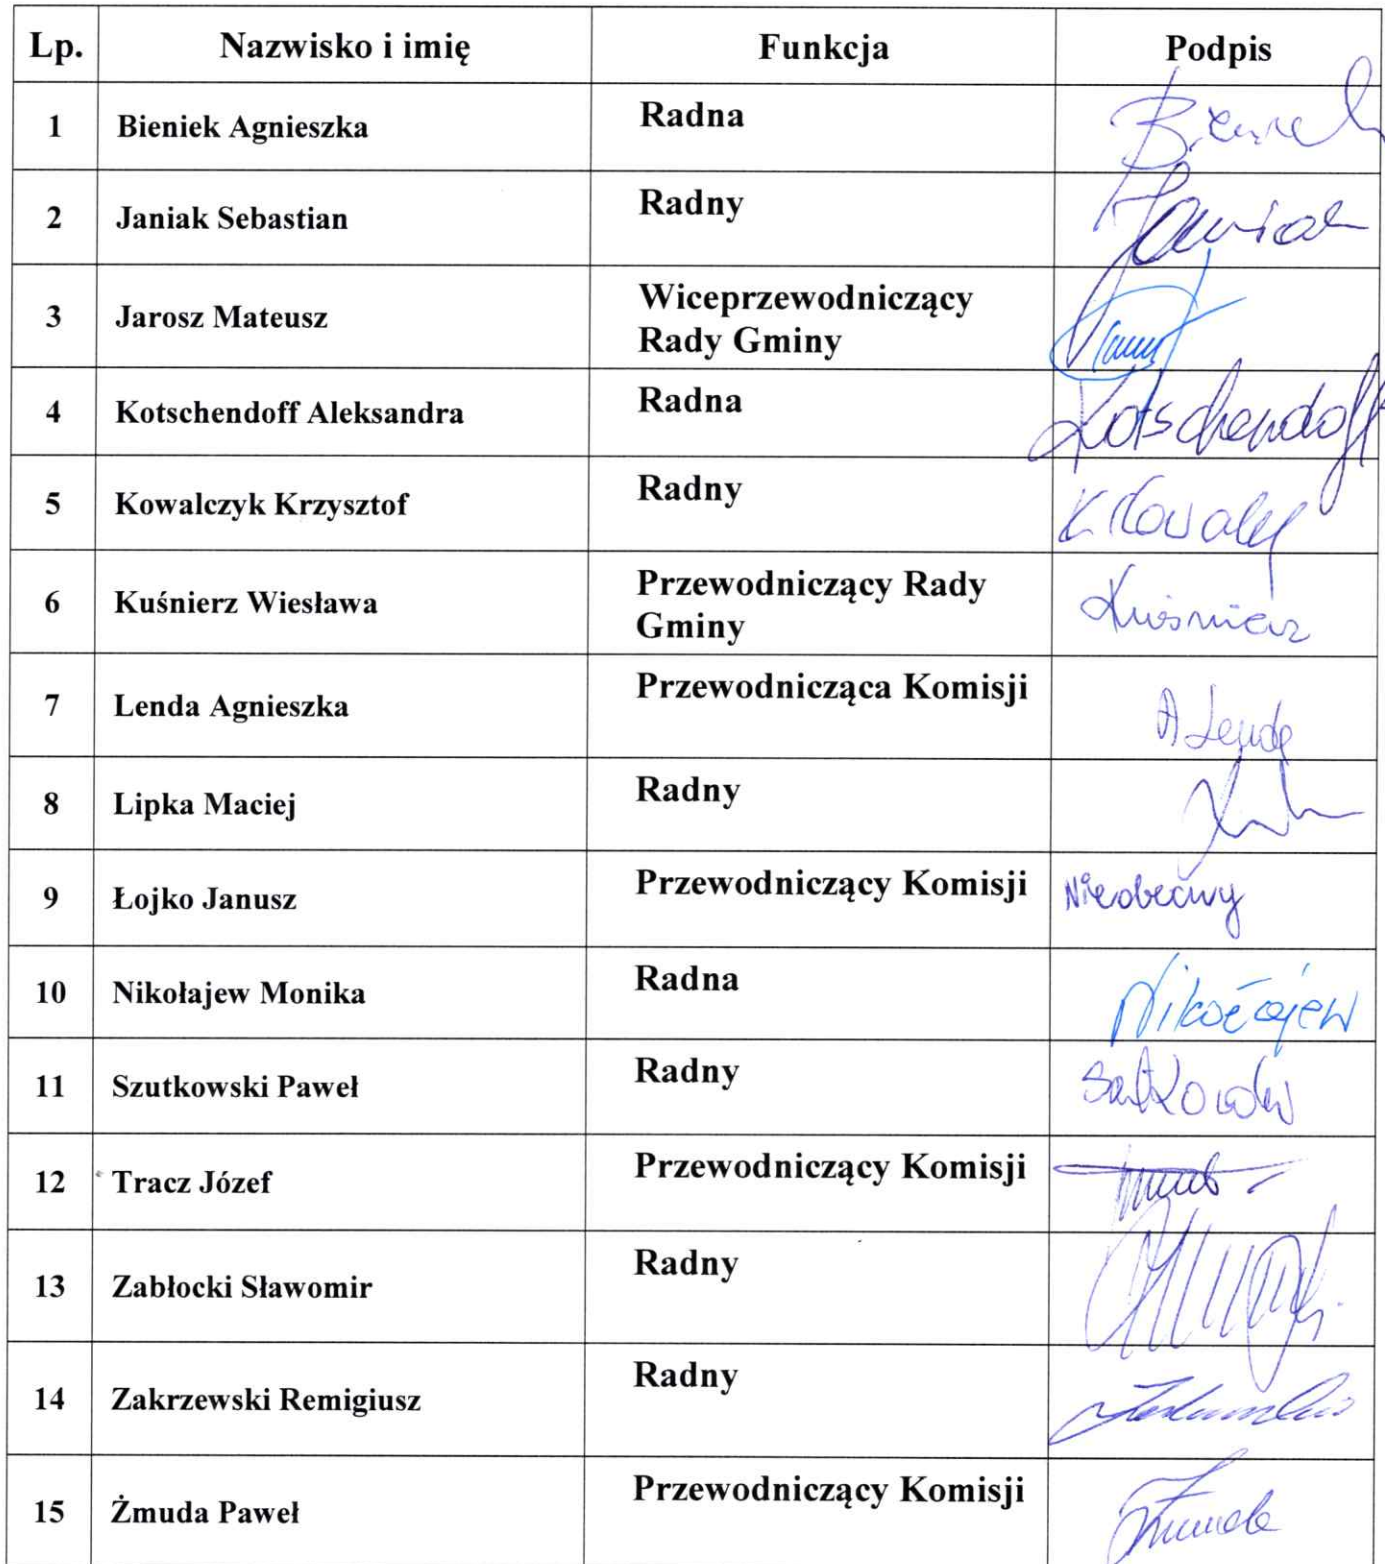 Lp. Nazwisko i imię Funkcja Podpis
1 Bieniek Agnieszka Radna
2 Janiak Sebastian Radny Janiak
3 Jarosz Mateusz Wiceprzewodniczący
Rady Gminy
4 Kotschendoff Aleksandra Radna Kotschendoff
5 Kowalczyk Krzysztof Radny
6 Kuśnierz Wiesława Przewodniczący Rady
Gminy Kuśnierz
7 Lenda Agnieszka Przewodnicząca Komisji A Lenda
8 Lipka Maciej Radny
9 Łojko Janusz Przewodniczący Komisji Nieobecny
10 Nikołajew Monika Radna Nikołajew
11 Szutkowski Paweł Radny
12 Tracz Józef Przewodniczący Komisji
13 Zabłocki Sławomir Radny
14 Zakrzewski Remigiusz Radny
15 Żmuda Paweł Przewodniczący Komisji Żmuda